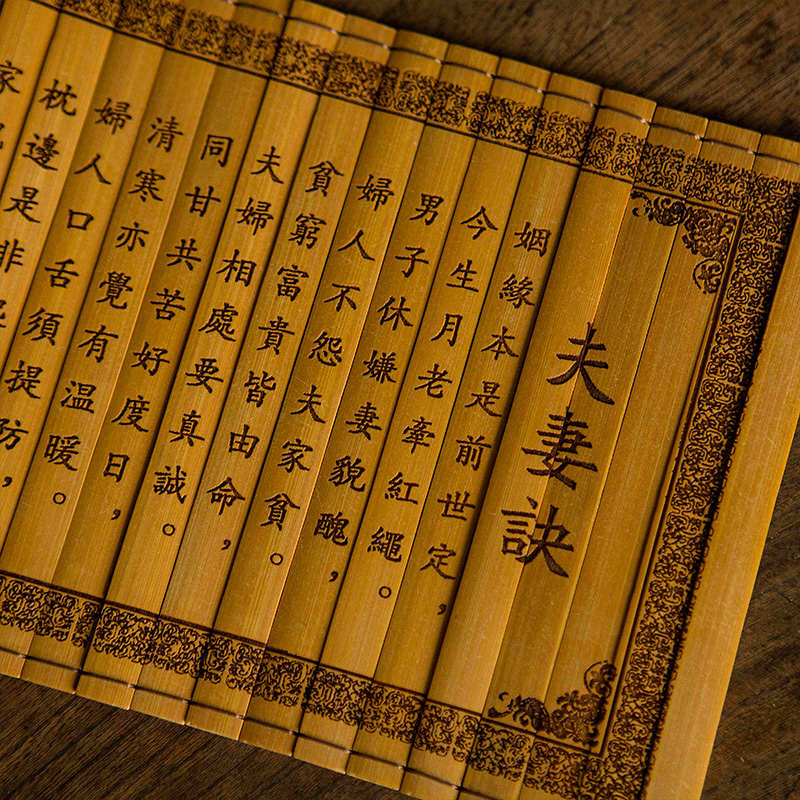 夫妻訣
姻緣本是前世定，
今生月老牽紅繩。
男子休嫌妻貌醜，
婦人不怨夫家貧。
貧窮富貴皆由命，
夫婦相處要真誠。
同甘共苦好度日，
清寒亦覺有温暖。
婦人口舌須提防，
枕邊是非
家